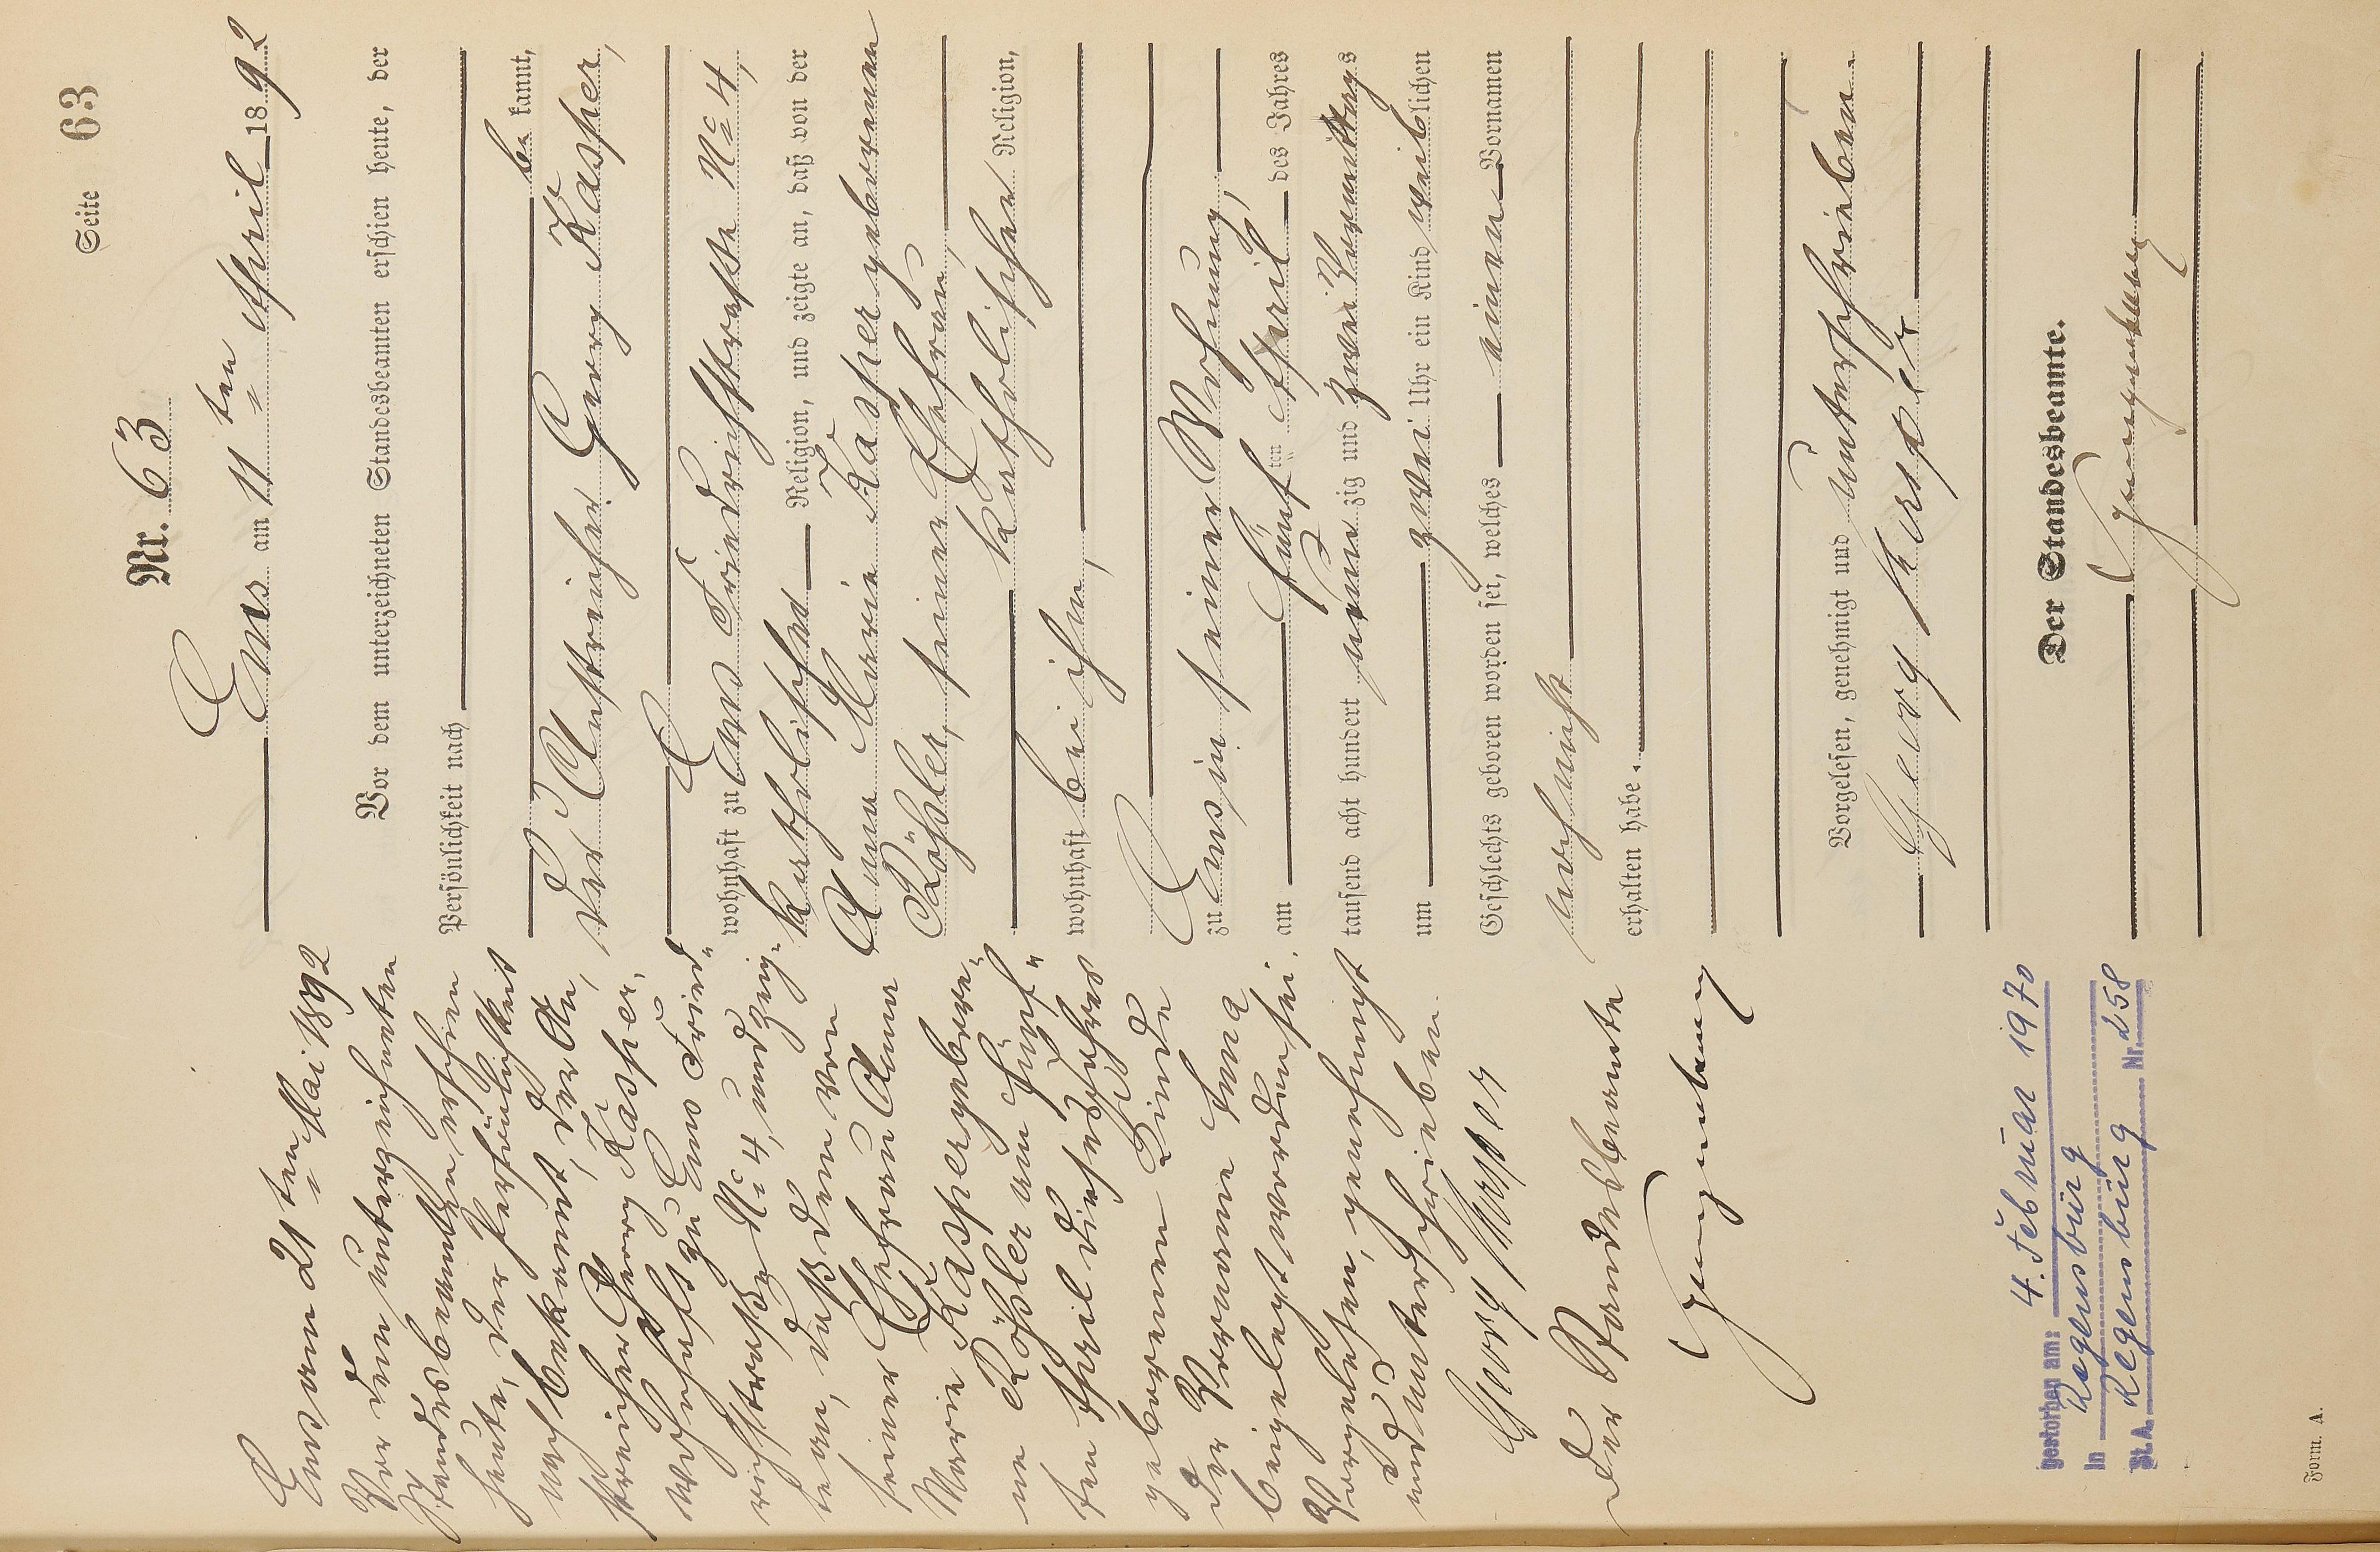 Seite 63
Nr. 63
Ems am 11ten April 1892
Vor dem unterzeichneten Standesbeamten erschien heute, der
Persönlichkeit nach
be kannt,
der Anstreicher Georg Kasper,
wohnhaft zu Ems Friedrichstraße No 4,
katholischer Religion, und zeigte an, daß von der
Anna Maria Kasper geborenen
Röhsler, seiner Ehefrau,
katholischer Religion,
wohnhaft bei ihm,
zu Ems in seiner Wohnung,
am fünf ten April des Jahres
tausend acht hundert neun zig und zwei Vormittags
um zwei Uhr ein Kind weib lichen
Geschlechts geboren worden sei, welches einen Vornamen
noch nicht
erhalten habe.
Vorgelesen, genehmigt und unterschrieben.
Georg Kasper
Der Standesbeamte.
Ems am 21ten Mai 1892
Vor dem unterzeichneten
Standesbeamten erschien
heute, der Persönlichkeit
nach bekannt, der An„
streicher Georg Kasper,
wohnhaft zu Ems Fried„
richstraße No 4, und zeig„
te an, daß dem von
seiner Ehefrau Anna
Maria Kasper gebore„
ne Röhsler am fünf„
ten April dieses Jahres
geborenen Kinde
der Vorname
beigelegt worden sei.
Vorgelesen, genehmigt
und unterschrieben.
Georg Kasper
Der Standesbeamte
gestorben am: 4. Februar 1970
in Regensburg
St.A. Regensburg Nr. 258
Form. A.